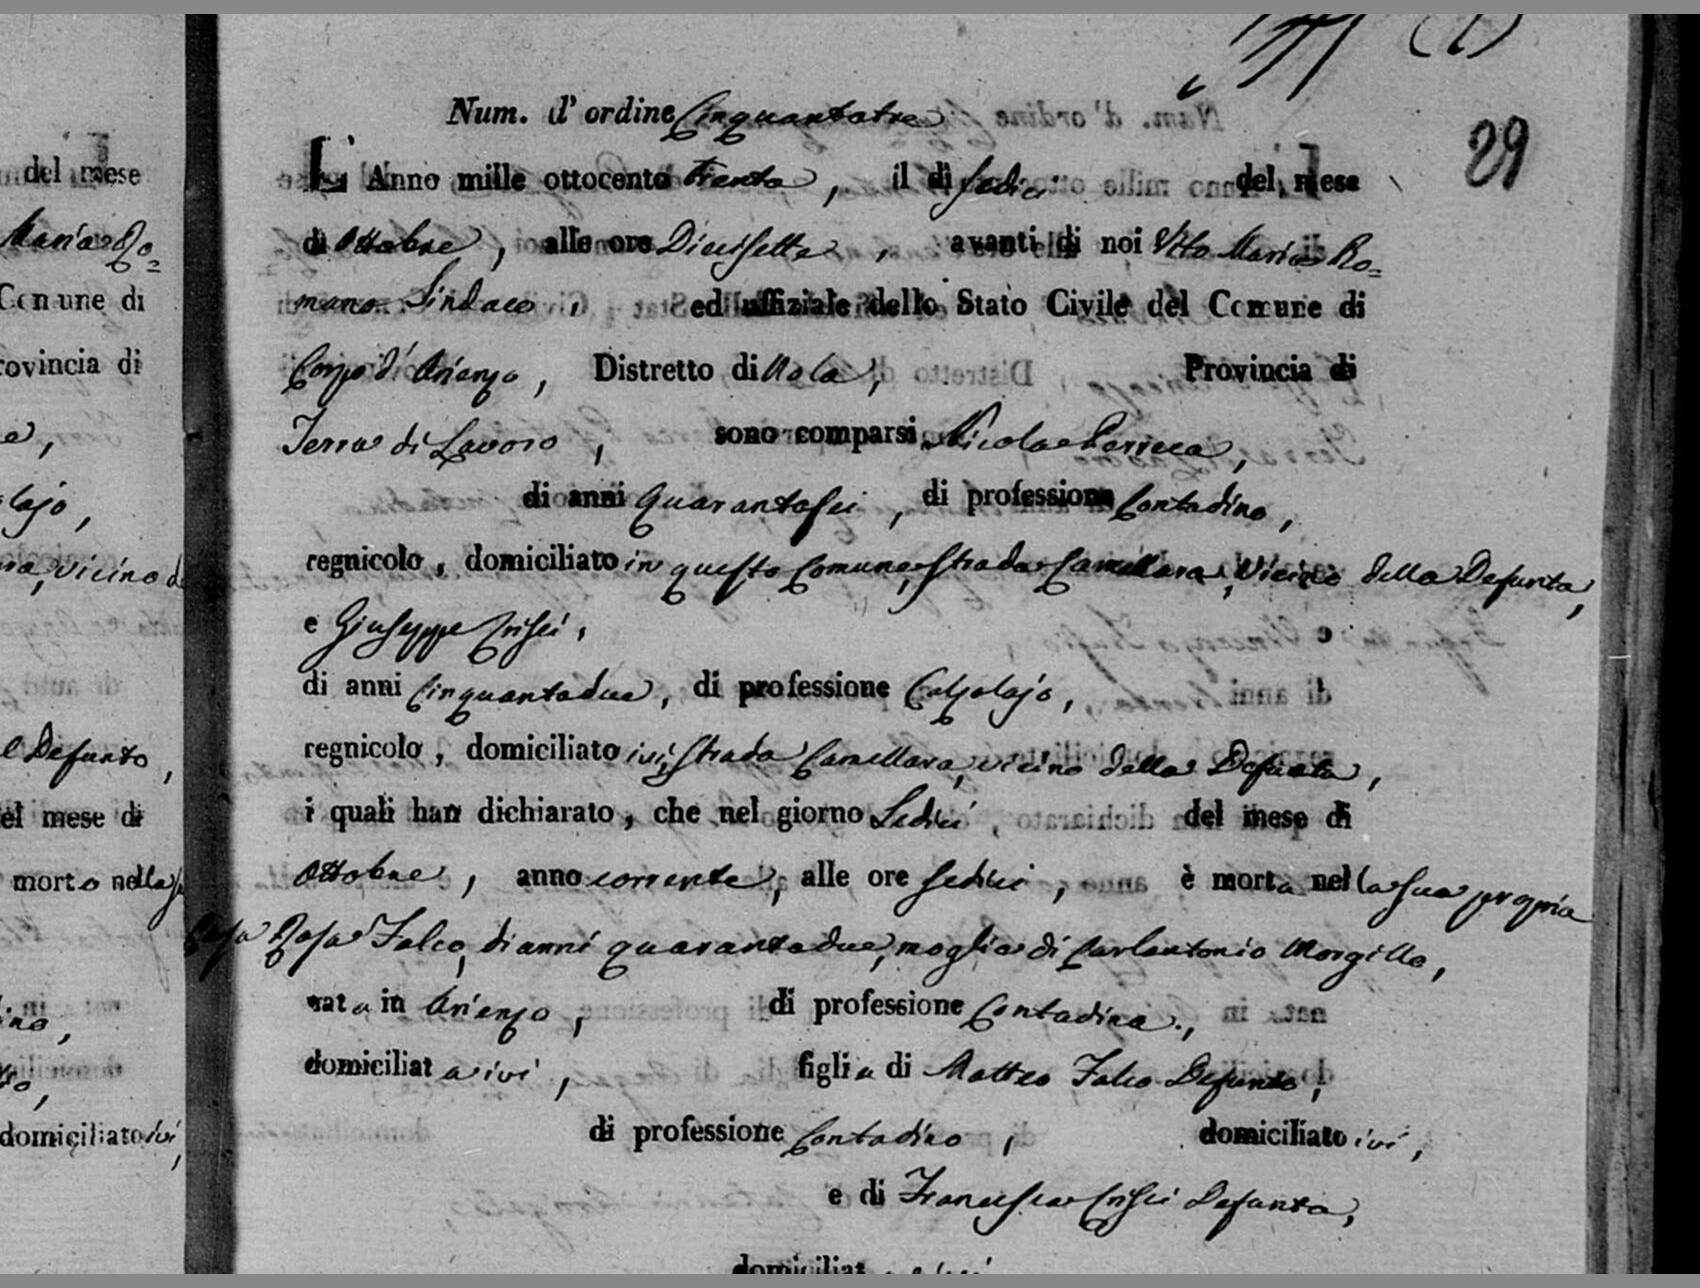 Num. d'ordine Cinquantatre
29
L'Anno mille ottocento trenta, il dì sedici del mese
di Ottobre, alle ore Diecisette, avanti di noi Vito Maria Ro=
mano Sindaco, ed uffiziale dello Stato Civile del Comune di
Corpo d'Arienzo, Distretto di Nola, Provincia di
Terra di Lavoro, sono comparsi Nicola Perreca,
di anni quarantasei, di professione Contadino,
regnicolo, domiciliato in questo Comune, strada Camellara, Vicino della Defunta,
e Giuseppe Crisci, e
di anni Cinquantadue, di professione Calzolajo,
regnicolo, domiciliato ivi, strada Camellara, vicino della Defunta,
i quali han dichiarato, che nel giorno Sedici del mese di
Ottobre, anno corrente, alle ore sedici, è morta nella sua propria
Casa Rosa Falco, di anni quarantadue, moglie di Carlantonio Morgillo,
nata in Arienzo, di professione Contadina,
domiciliata ivi, figlia di Matteo Falco Defunto,
di professione Contadino, domiciliato ivi,
e di Francesca Crisci Defunta,
domiciliat ivi
del mese
Maria Ro=
Comune di
rovincia di
e,
lajo,
vicino d
l Defunto,
el mese di
morto nella
ino,
domiciliato ivi,